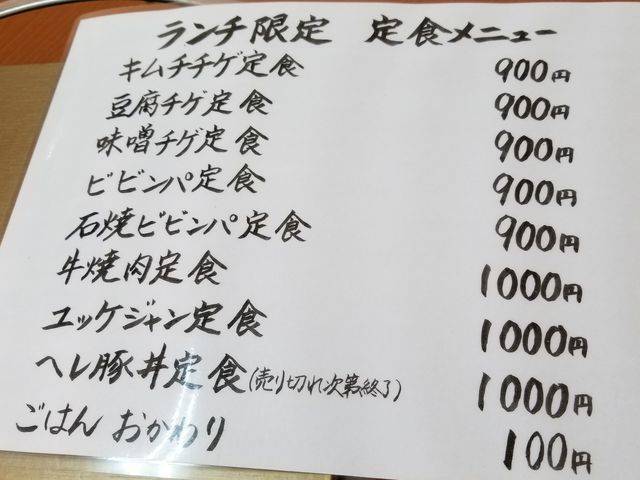 ランチ限定 定食メニュー
キムチチゲ定食 900円
豆腐チゲ定食 900円
味噌チゲ定食 900円
ビビンパ定食 900円
石焼ビビンパ定食 900円
牛焼肉定食 1000円
ユッケジャン定食 1000円
ヘレ豚丼定食(売り切れ次第終了) 1000円
ごはん おかわり 100円